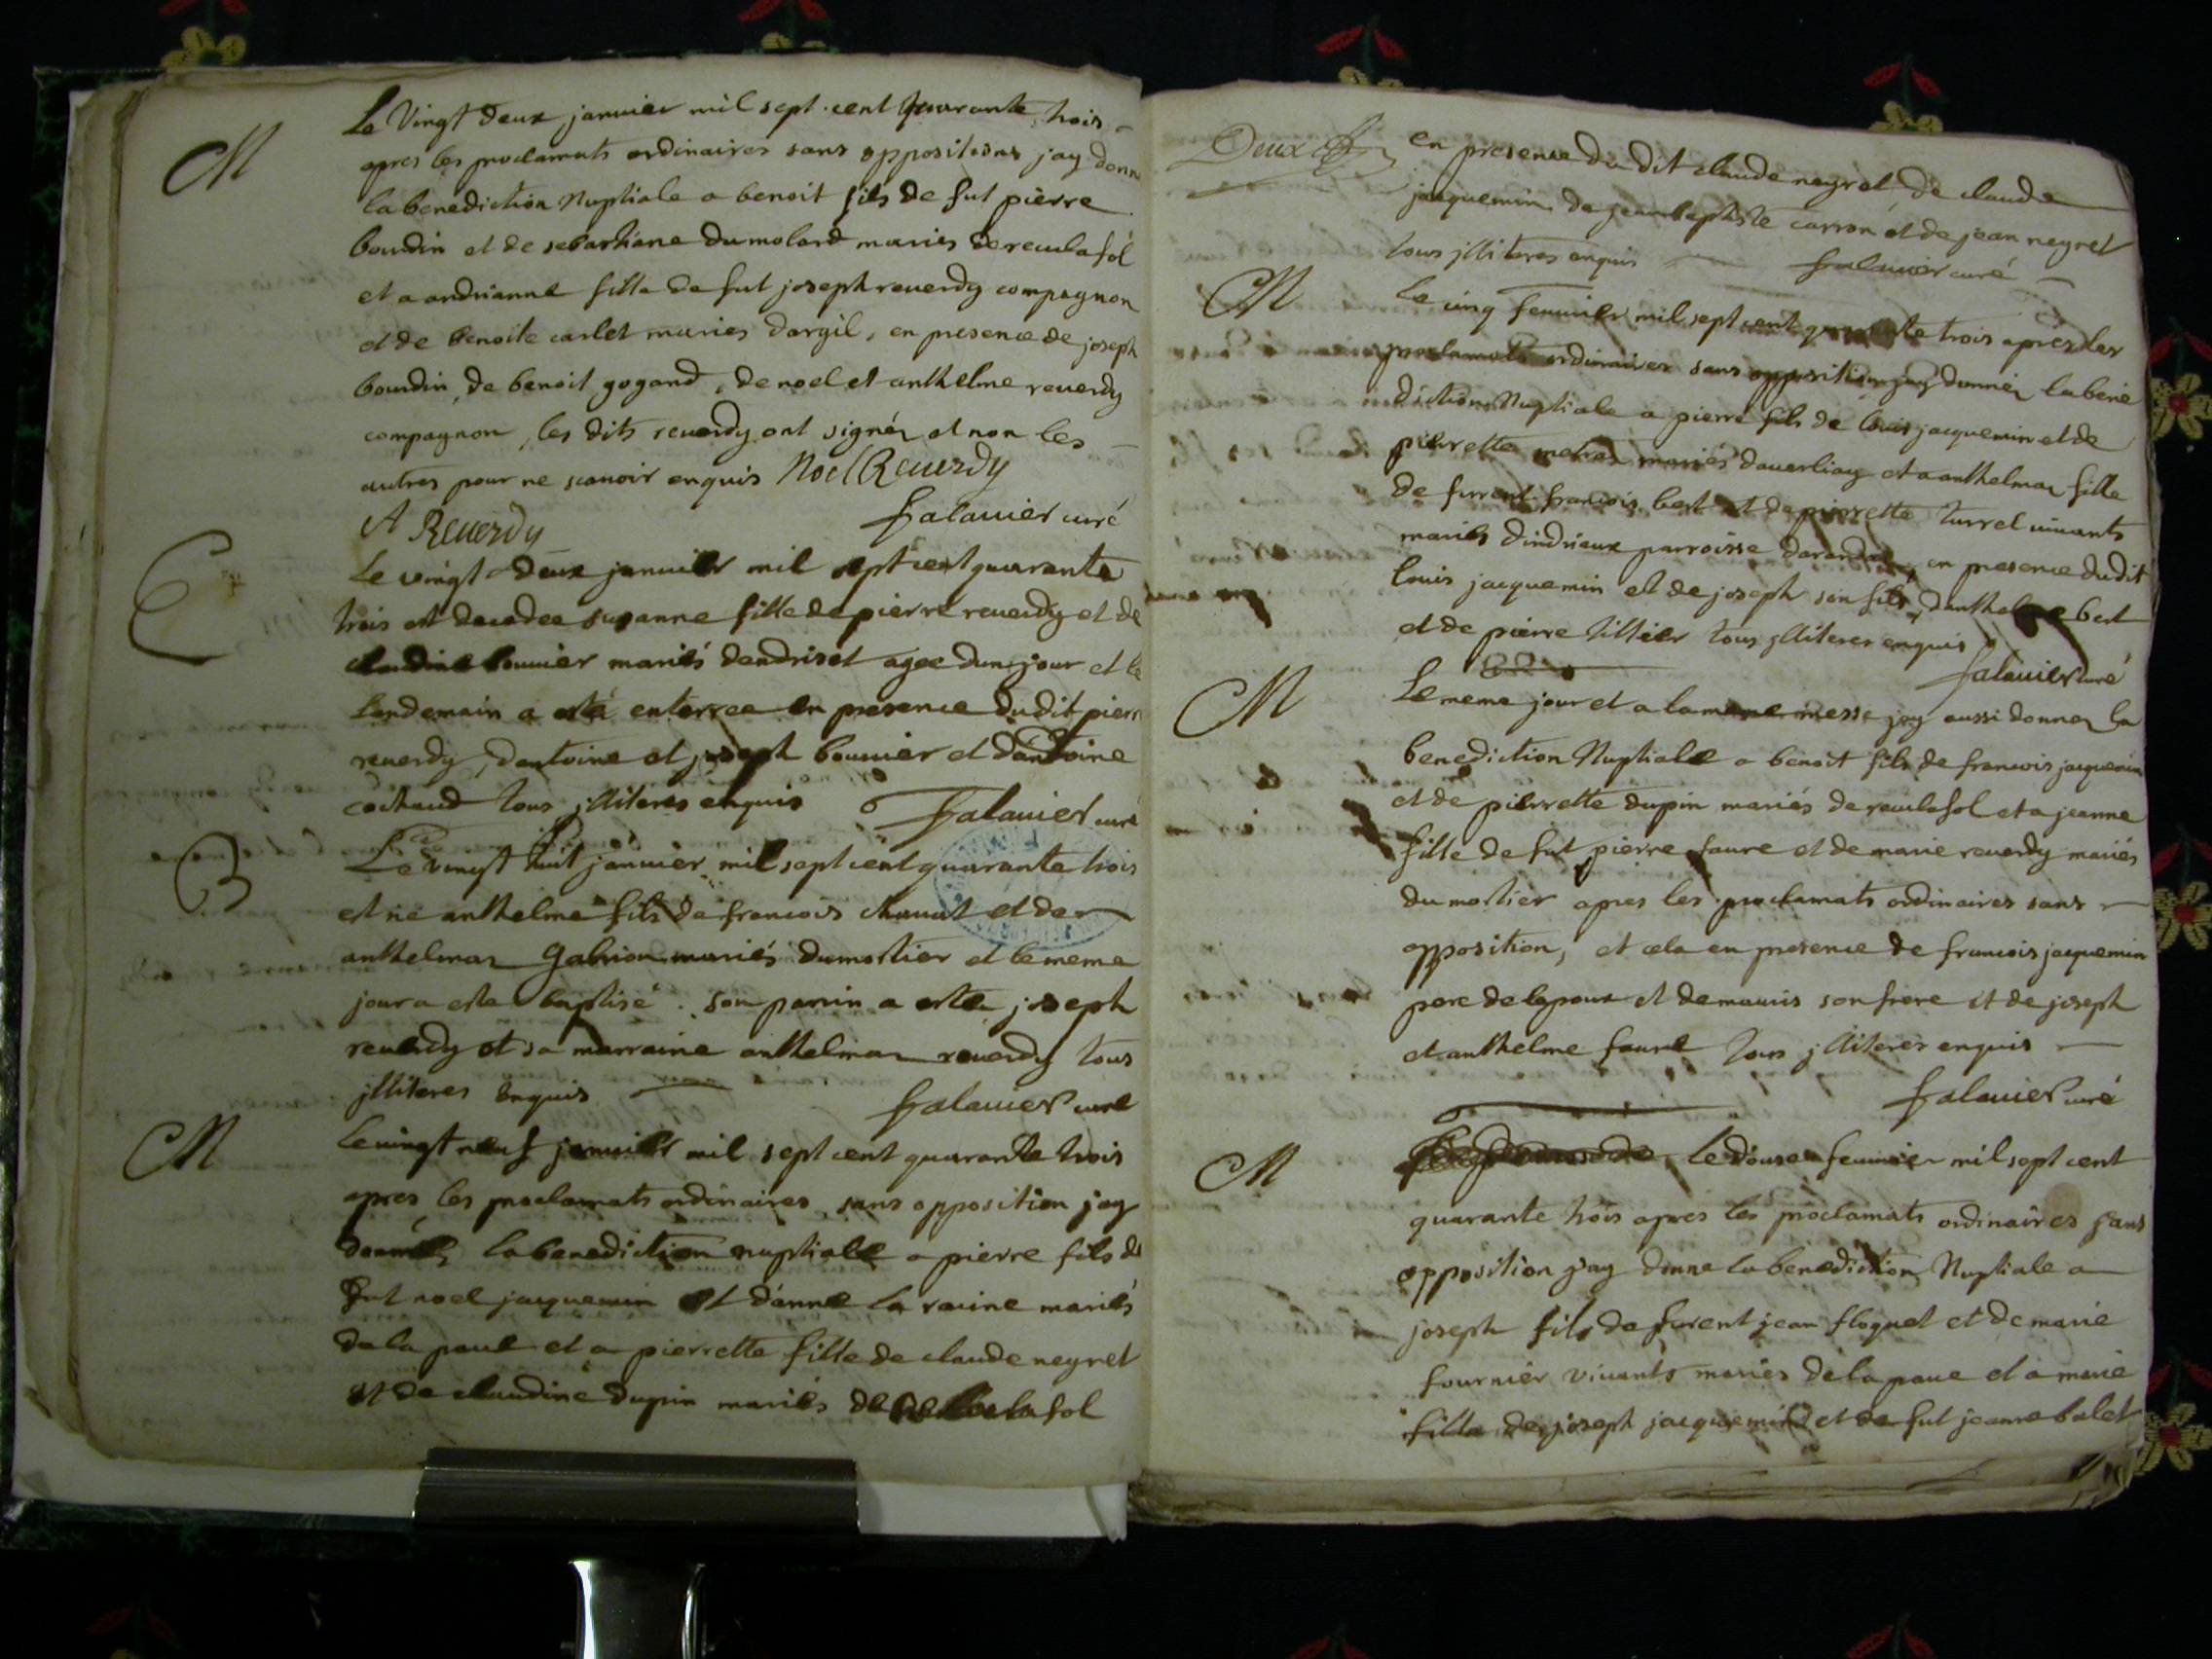 M
Le Vingt deux janvier mil sept cent quarante trois
apres les proclamats ordinaires sans oppositions jay donn
la benediction Nuptiale a benoit fils de fut pierre
bourdin et de sebastiane dumolard mariés de reculafol
et a andrianne fille de fut joseph reuerdy compagnon
et de benoite carlet maries dargil, en presence de joseph
bourdin, de benoit gogand, de noel et anthelme reuerdy
compagnon, les dits reuerdy ont signéz et non les
autres pour ne scauoir enquis Noel Reuerdy
A Reuerdy falauier curé
Le vingt deux januier mil sept cent quarante
trois est decedee susanne fille de pierre reuerdy et de
claudine bouuier mariés dendriset agee dun jour et le
landemain a esté enterree en presence dudit pierr
reuerdy, dantoine et joseph bouuier et dantoine
cochaud tous jlliteres enquis falauier curé
B
Le vingt huit janvier mil sept cent quarante trois
est né anthelme fils de francois chanat et de
anthelmaz Gabrion mariés dumortier et le meme
jour a este baptisé. son parrin a este joseph
reuerdy et sa marraine anthelmaz reuerdy tous
jlliteres enquis falauier curé
M
Le vingt neuf januier mil sept cent quarante trois
apres les proclamats ordinaires sans opposition jay
donnéz la benediction nuptiale a pierre fils de
fut noel jacquemin et d'anne la racine mariés
de la paue et a pierrette fille de claude neyret
et de claudine dupin mariés de reculafol
Deux
en presence du dit claude neyret, de claude
jacquemin de jean baptiste carron et de jean neyret
tous jlliteres enquis falauier curé
M
Le cinq feurier mil sept cent quarante trois apres les
proclamats ordinaires sans opposition jay donnéz la béné
diction Nuptiale a pierre fils de louis jacquemin et de
pierrette mariés dauerliaz et a anthelmaz fille
de furent francois bert et de pierrette turrel uiuants
mariés dindrieux parroisse en presence dudit
louis jacquemin et de joseph son fils, danthelme bert
et de pierre tillier tous jlliteres enquis
falauier curé
M
Le meme jour et a la meme messe jay aussi donnez la
benediction Nuptiale a benoit fils de francois jacquemin
et de pierrette dupin mariés de reculafol et a jeanne
fille de fut pierre faure et de marie reuerdy mariés
du mortier apres les proclamats ordinaires sans
opposition, et cela en presence de francois jacquemin
pere de lepoux et de mauris son frere et de joseph
et anthelme faure tous jlliteres enquis
falauier curé
M
le douse feurier mil sept cent
quarante trois apres les proclamats ordinaires sans
opposition j'ay donne la benediction Nuptiale a
joseph fils de furent jean floquet et de marie
fournier viuants mariés de la paue et a marie
fille de joseph jacquemin et de fut jeanne balet